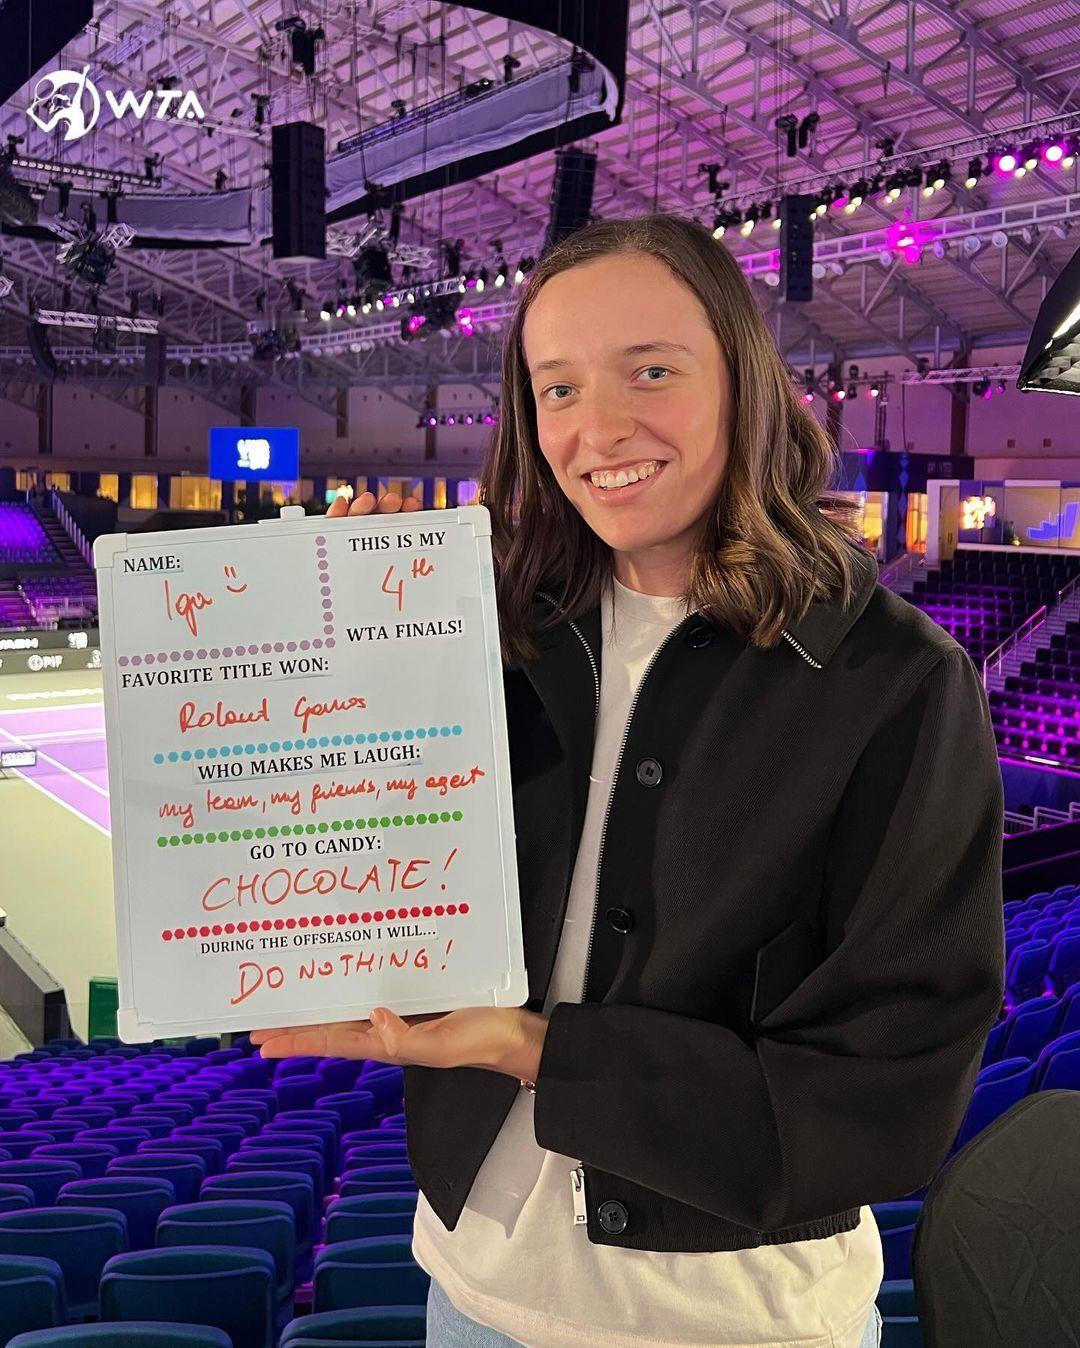 WTA
NAME:
Iga
THIS IS MY
4th
WTA FINALS!
FAVORITE TITLE WON:
Roland Garros
WHO MAKES ME LAUGH:
my team, my friends, my agent
GO TO CANDY:
CHOCOLATE!
DURING THE OFFSEASON I WILL...
DO NOTHING!
PIF